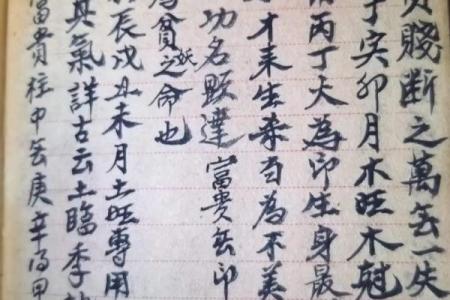 賤斷之萬无一失
寅卯月木旺木尅
丙丁火為印生身最
才来生杀自為不美
功名顕達富貴无印
貧妖之命也
辰戌丑未月土旺專用
其氣詳古云土臨季
富貴柱中无庚辛